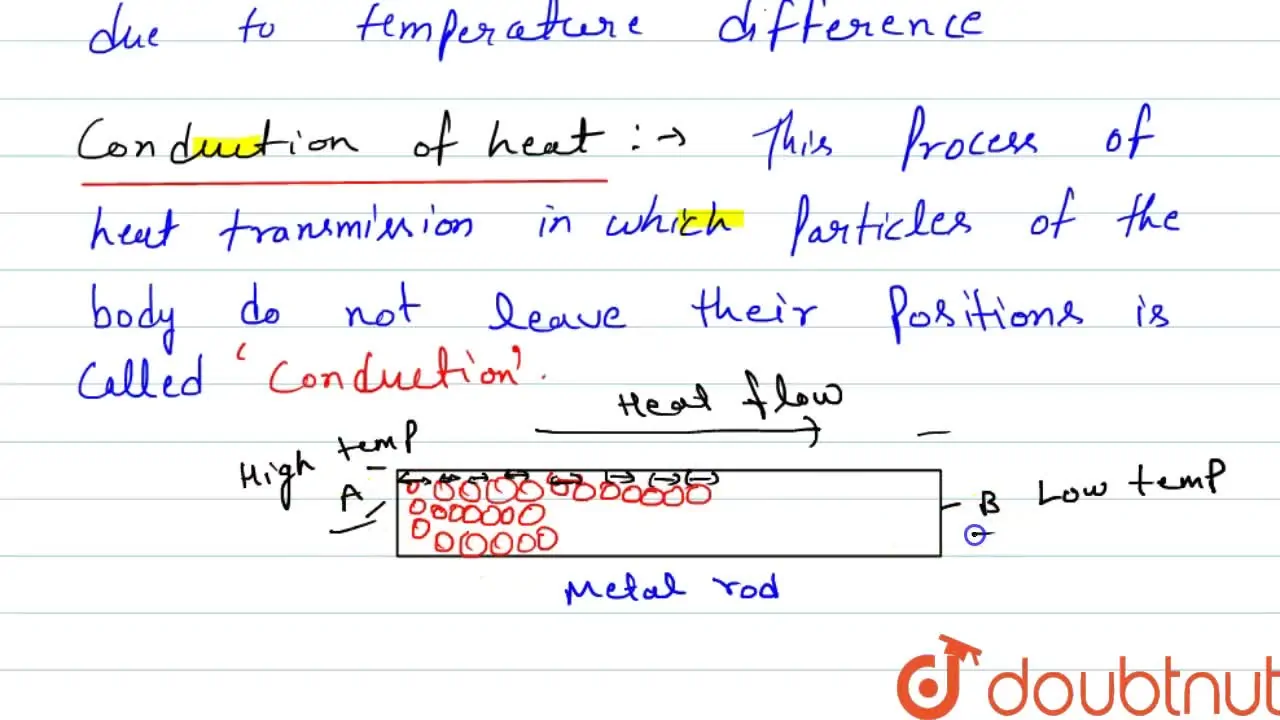 due to temperature difference
Conduction of heat :→ This Process of
heat transmission in which Particles of the
body do not leave their Positions is
Called 'Conduction'.
Heat flow
High temp
A
B Low temp
Metal rod
doubtnut